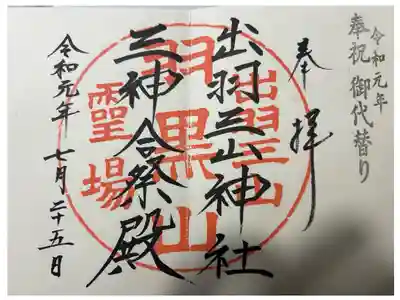 令和元年
奉祝 御代替り
奉拝
出羽三山神社
三神合祭殿
令和元年 七月二十五日
出羽三山
羽黒山
靈場